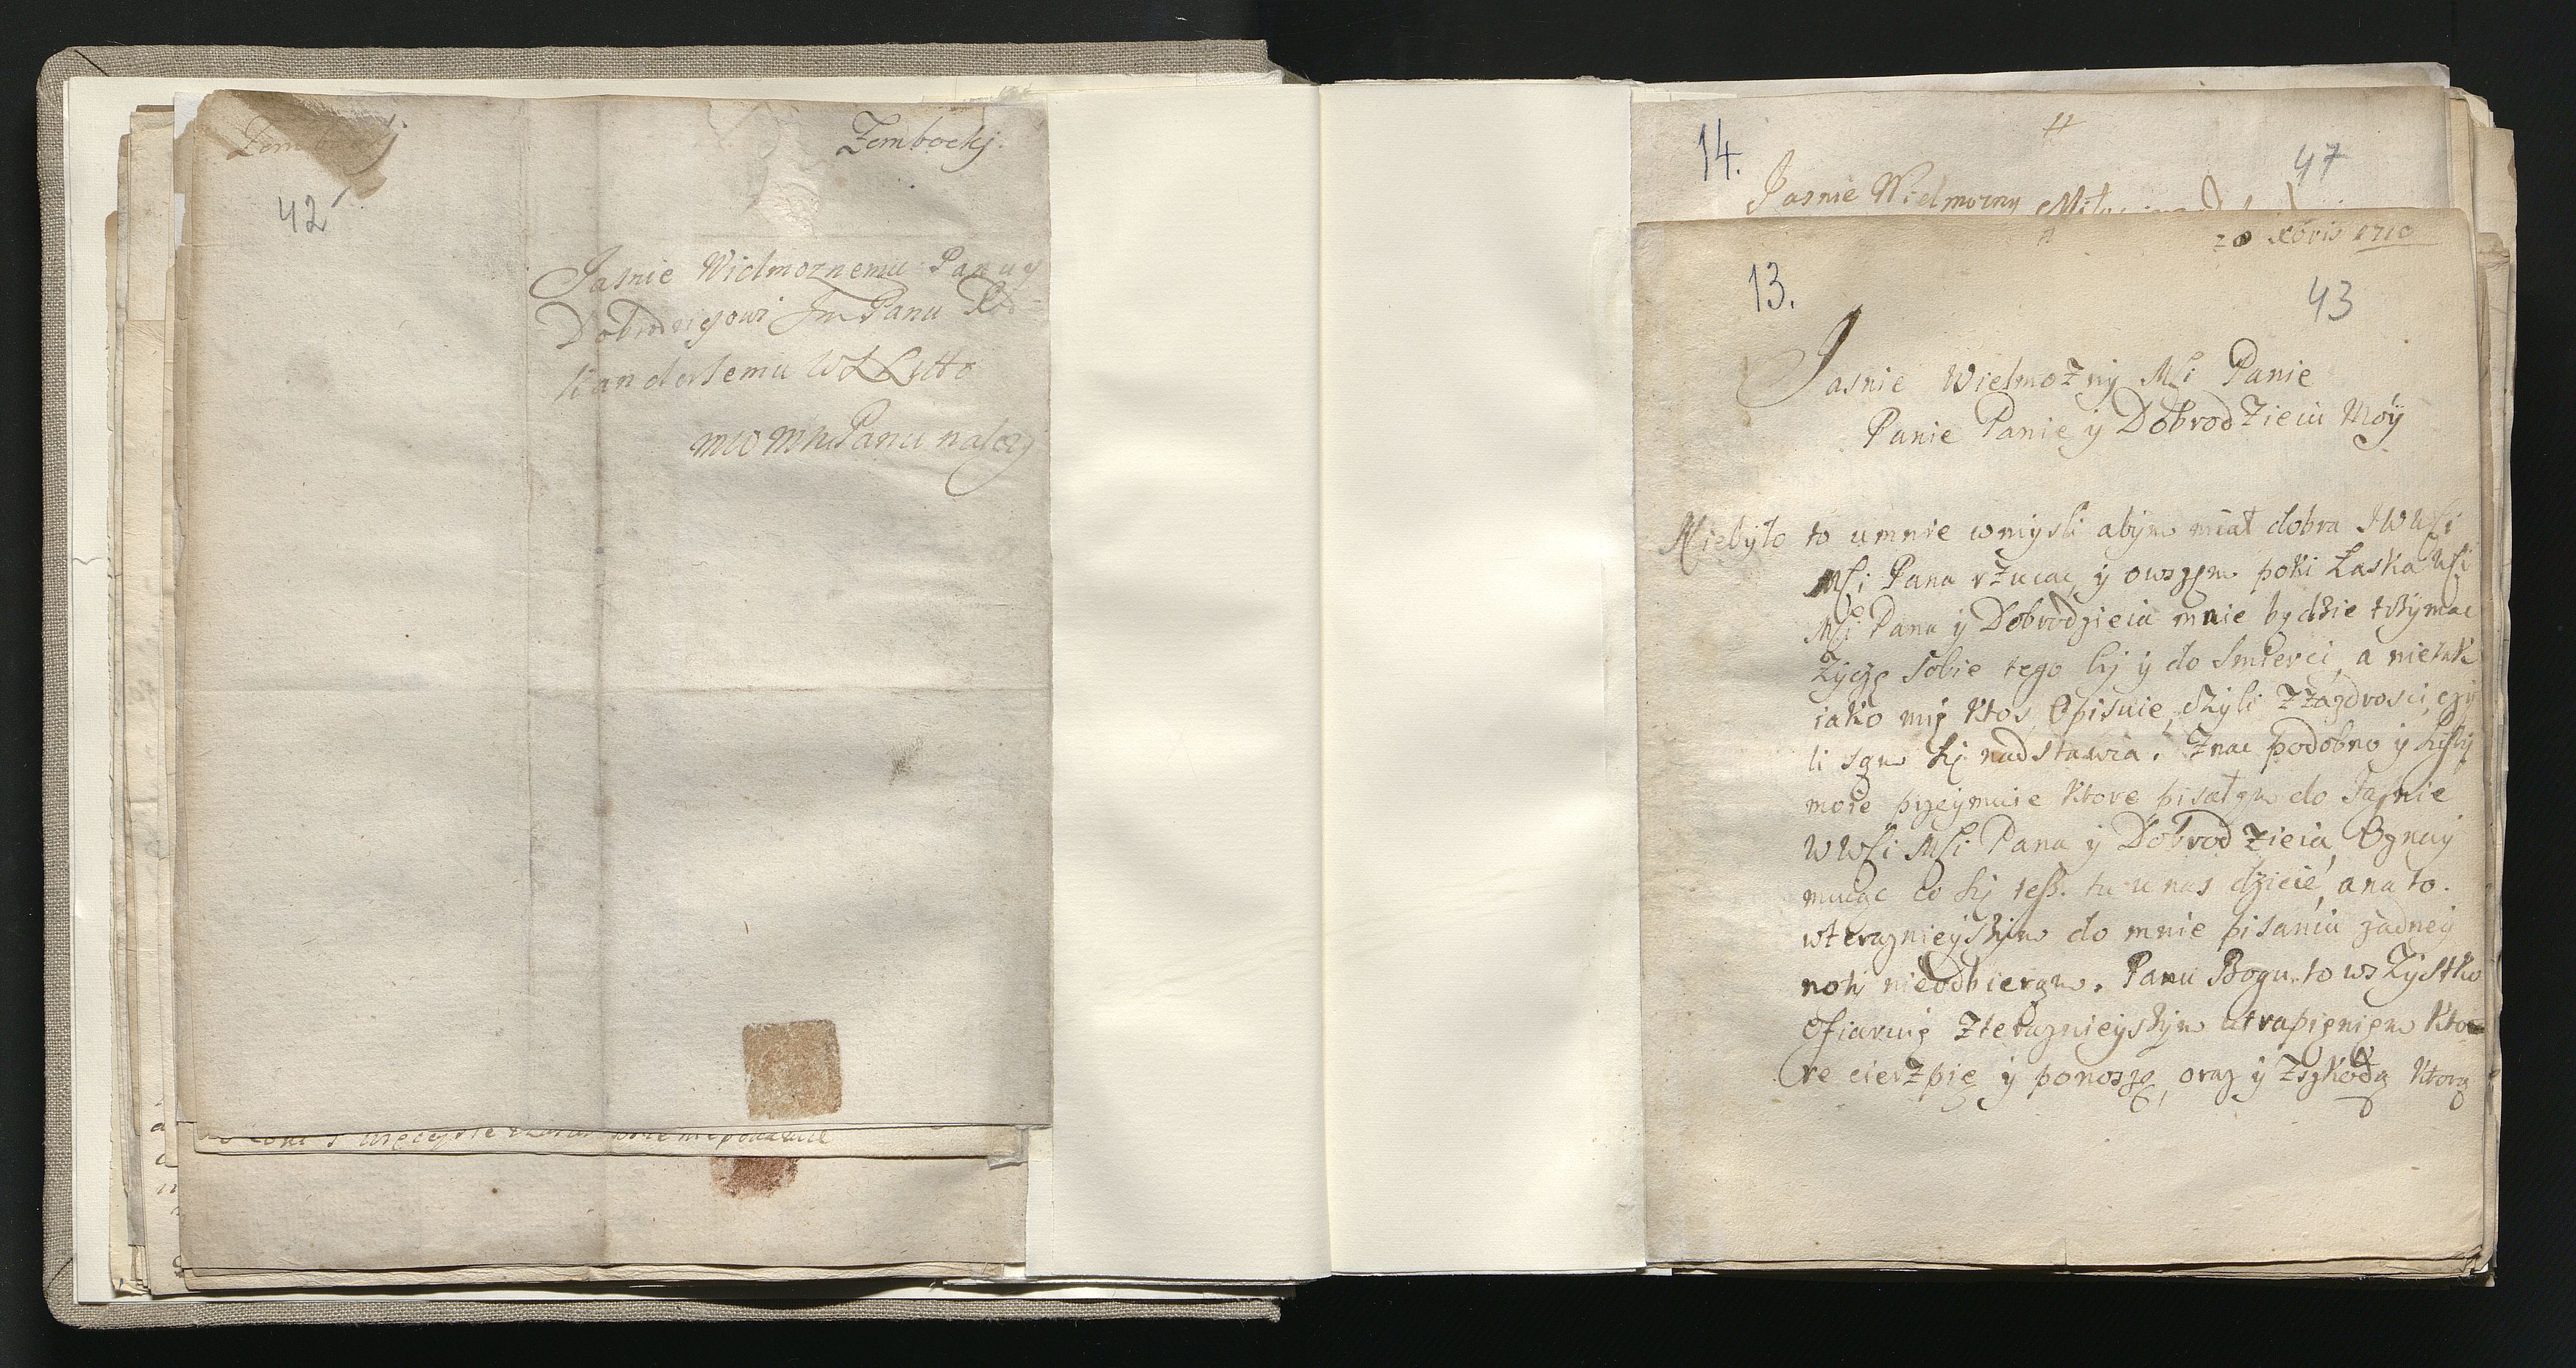 Zembockj.
42
Jasnie Wielmoznemu Panu y
Dobrodzieiowi Jm Panu Pod
kanclerzemu W X Litto
mw Panu nalezy
14.
47
Jasnie Wielmozny
20 Xbris 1710
13.
43
Jasnie Wielmożny Msci Panie
Panie Panie y Dobrodzieiu Moy
Niebyło to umnie wmysli abym miał dobra JWWsci
Msci Pana rzucac, y owszem poki Łaska Wsci
Msci Pana y Dobrodzieia mnie będzie trzymac
Zyczę sobie tego y do Smierci, a nietak
iako mię ktos Opisuie, Zzazdrosci, czy
li nadstawia. Znac podobno y listy
moie przeymuie ktore pisałem do Jasnie
WWsci Msci Pana y Dobrodzieia, Oznay
muiąc co tu u nas dzieie, ana to
wteraznieyszym do mnie pisaniu zadney
nieodbieram. Panu Bogu to wszystko
Ofiaruię zteraznieyszym utrapieniem kto
re cierzpię y ponoszę, oraz y Zszkodą ktorą